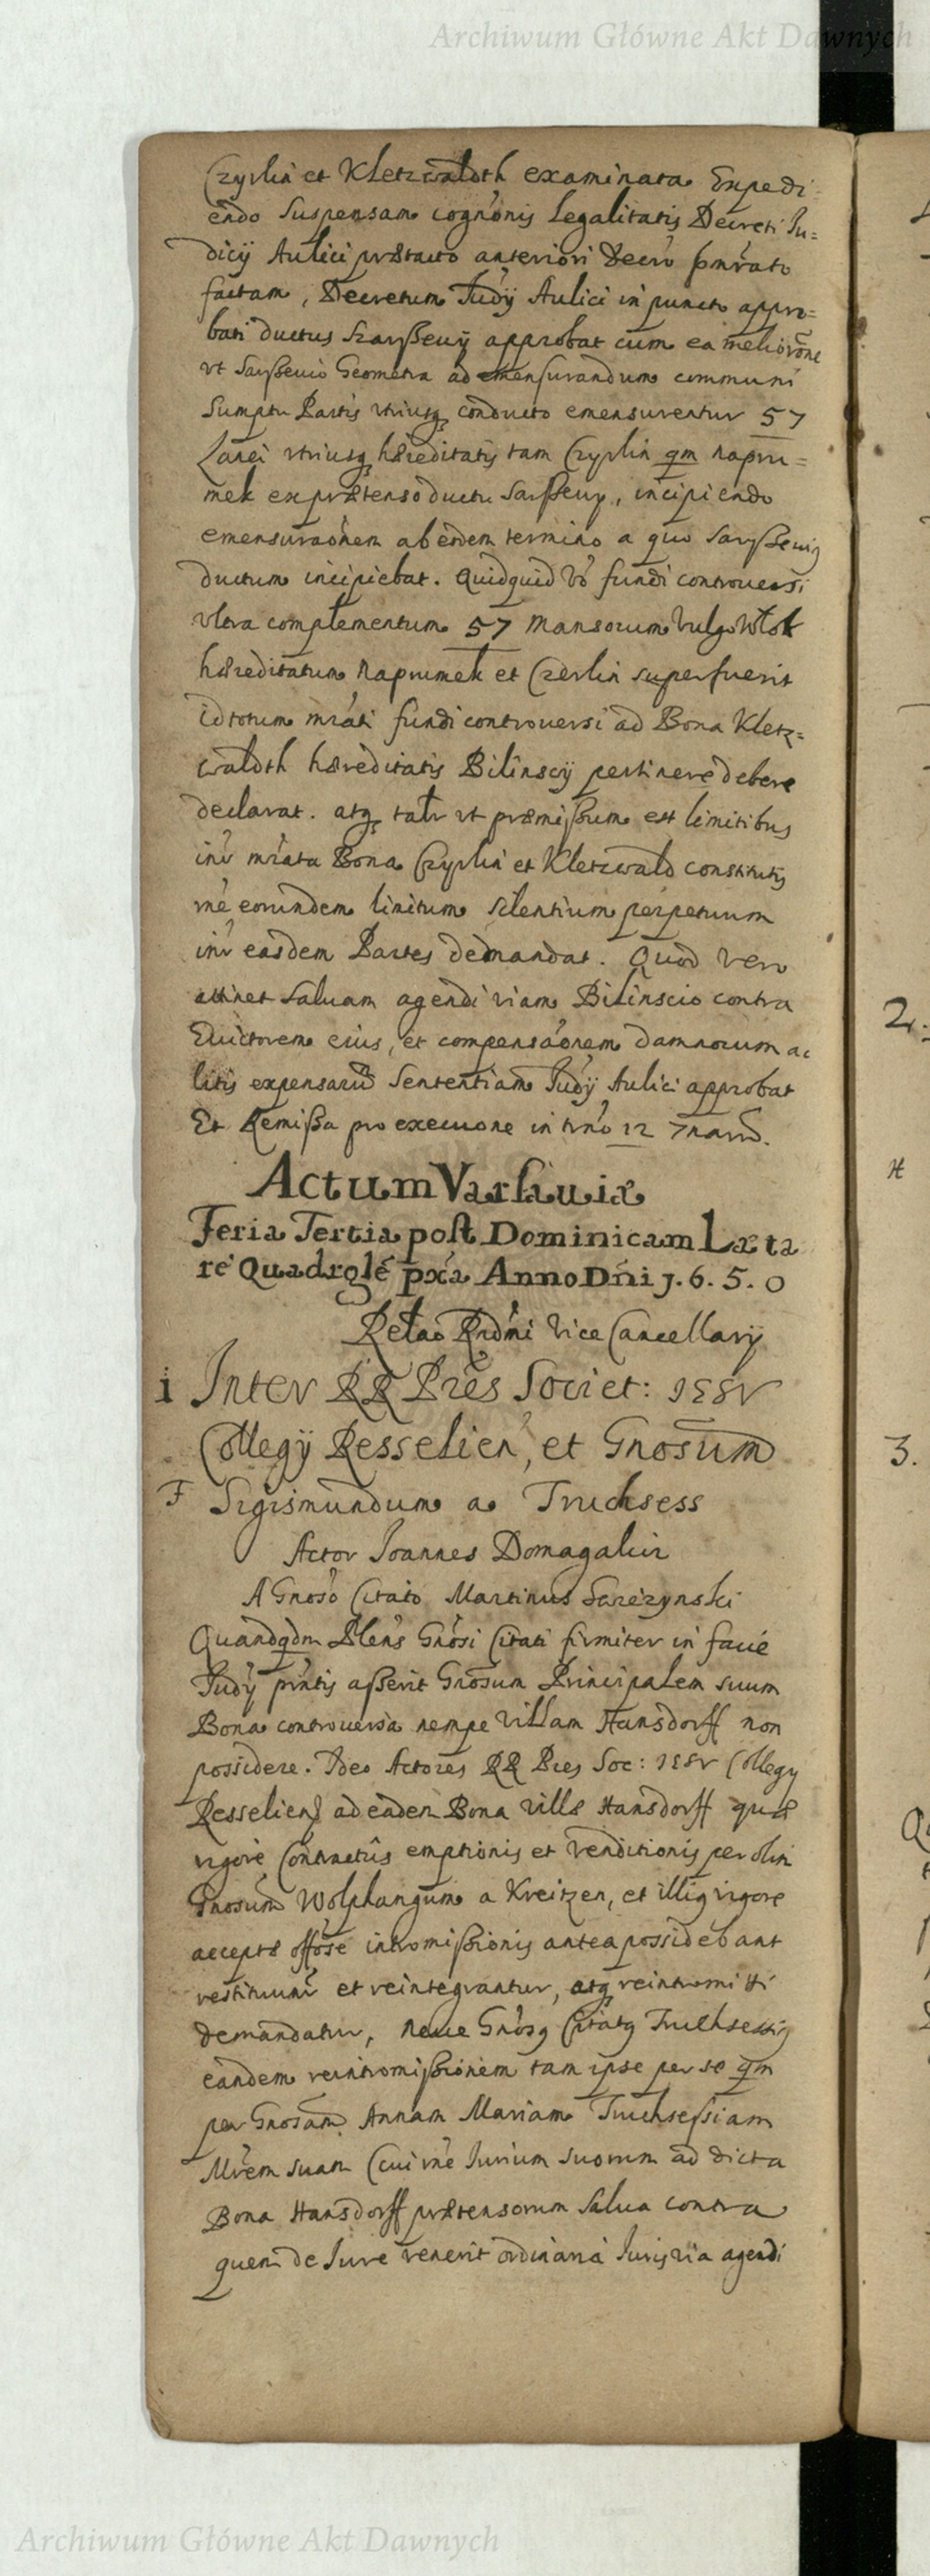 Archiwum Główne Akt Dawnych
Czyrlin et Kletzwaldth examinata Expedi-
endo Suspensam cognōnis Legalitatis Decreti Iu=
dicij Aulici prætacto anteriori Decro
factam, Decretum Iudij Aulici in puncto appro=
bati ductus Szaryszewij approbat cum ea meliorōne
vt Saryszewio Geometra ad emensurandum communi
Sumptu Partis vtriusq conducto emensurentur 57
Lanei vtriusq hæreditatis tam Czyrlin qm Napru=
mek ex prætenso ductu Saryszewy, incipiendo
emensuraōnem ab eodem termino a quo Saryszewig
ductum incipiebat. Quidquid vo fundi controuersi
vltra complementum 57 Mansorum vulgo Włok
hæreditatum Naprumek et Czerlin superfuerit
id totum mrati fundi controuersi ad Bona Kletz=
waldth hæreditatis Bilinscij pertinere debere
declarat. atq talr vt præmissum est limitibus
inr mrata Bona Czyrlin et Kletzwald constitutis
rne eorundem limitum silentium perpetuum
inr easdem Partes demandat. Quod vero
attinet Saluam agendi viam Bilinscio contra
Euictorem eius, et compensaōnem damnorum ac
litis expensarū Sententiam Iudij Aulici approbat
Et Remissa pro execuone in trno 12
Actum Varsauiæ
Feria Tertia post Dominicam Læta
re Quadrgle pxa Anno Dni 1.6.5.0
Relao Rndmi Vice Cancellarij
1 Inter RR Pres Societ: IESV
Collegij Resselien, et Gnosum
F Sigismundum a Truchsess
Actor Joannes Domagalicz
A Gnoso Citato Martinus
Quandqdm Plens Gnosi Citati firmiter in facie
Iudij prntis asserit Gnosum Principalem suum
Bona controuersa nempe Villam Hansdorff non
possidere. Ideo Actores RR Pres Soc: IESV Collegij
Resselien ad eadem Bona Villæ Hansdorff quæ
vigore Contractus emptionis et venditionis per olim
Gnosum Wolphangum a Kreitzen, et illig vigore
acceptæ offose intromissionis antea possidebant
restituunr et reintegrantur, atq reintromitti
demandatur, neue Gnosq Citatq Truchsessig
eandem reintromissionem tam ipse per se qm
per Gnosam Annam Mariam Truchsessiam
Mrem suam (cui rne Iurium suorum ad dicta
Bona Hansdorff prætensorum Salua contra
quem de Iure venerit ordinaria Iuris via agendi
2.
H
3.
Archiwum Główne Akt Dawnych